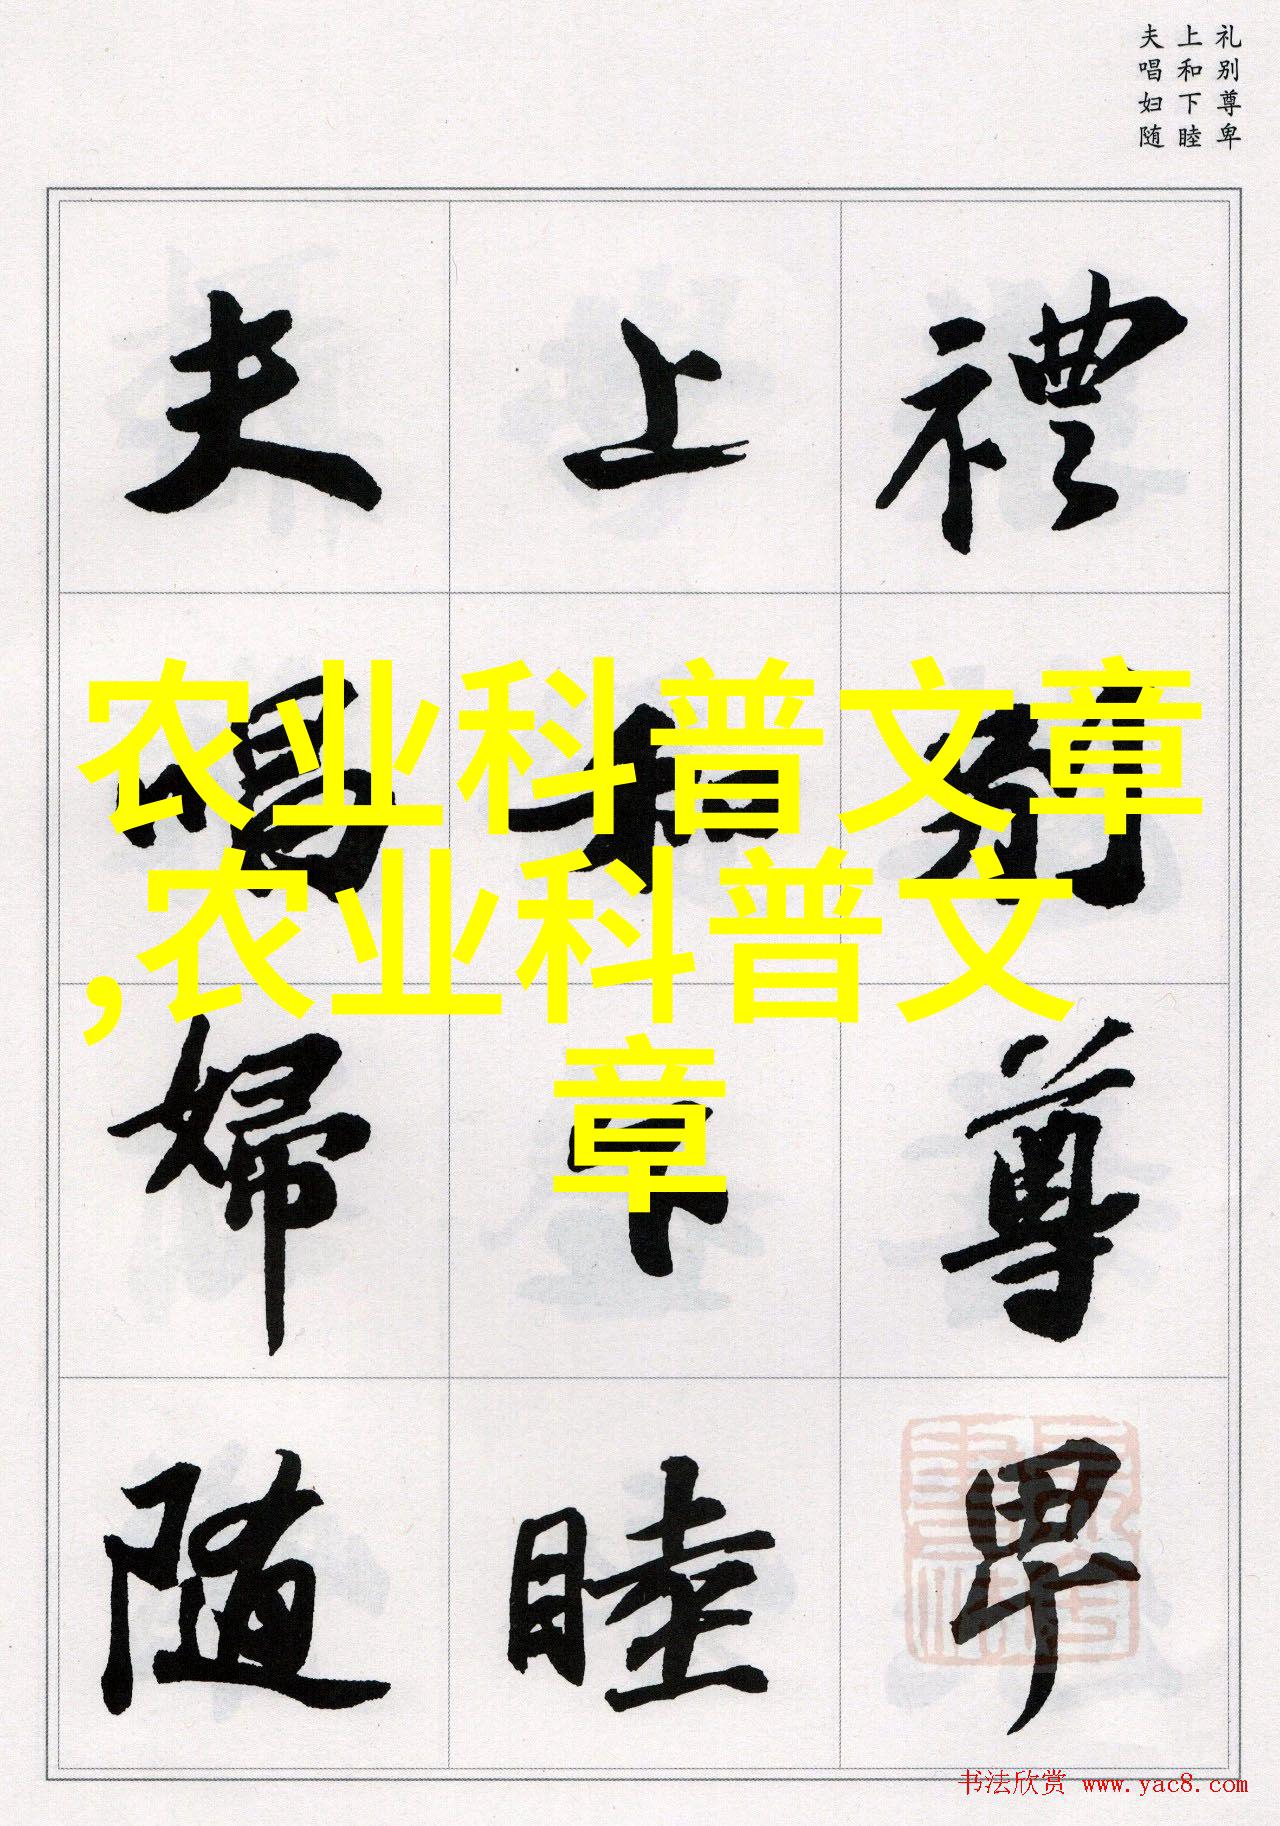 礼别尊卑
上和下睦
夫唱妇随
禮别尊卑
上和下睦
夫唱婦随
农业科普文章
,农业科普文
章
书法欣赏 www.yac8.com